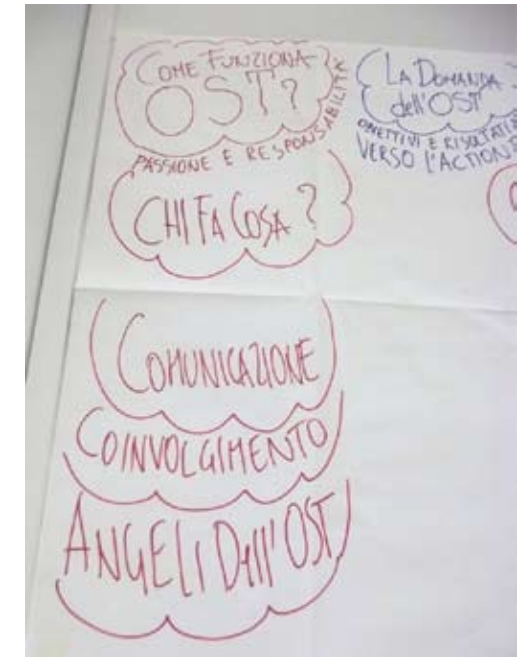 COME FUNZIONA
OST?
PASSIONE E RESPONSABILITÀ
CHI FA COSA?
COMUNICAZIONE
COINVOLGIMENTO
ANGELI Dell'OST
LA DOMANDA
dell'OST
OBIETTIVI E RISULTATI
VERSO L'ACTION